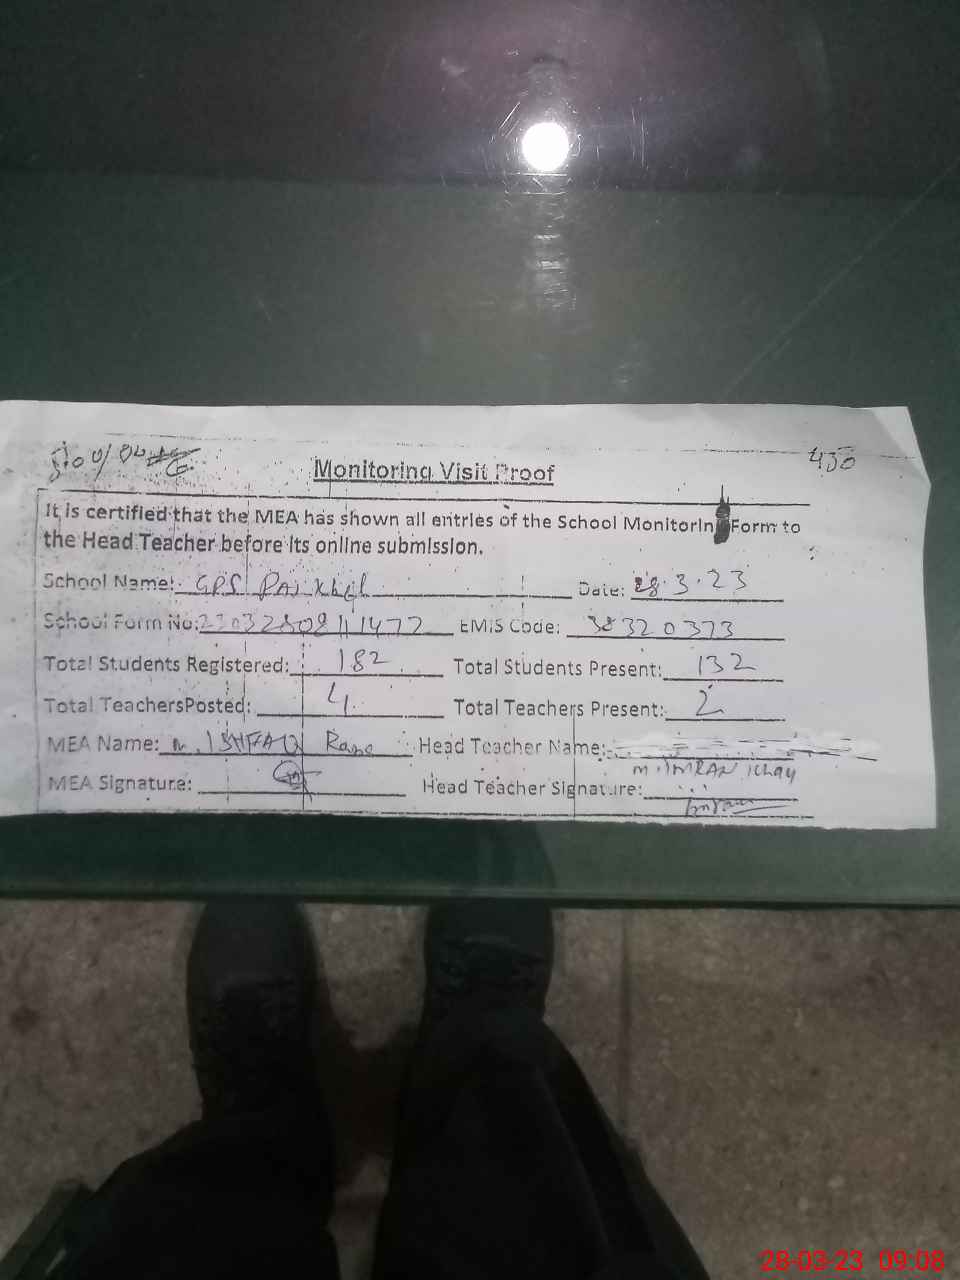 450
Monitoring Visit Proof
It is certified that the MEA has shown all entries of the School Monitoring Form to
the Head Teacher before its online submission.
School Name: GPS PAI Khel Date: 28.3.23
School Form No: EMIS Code: 38320373
Total Students Registered: 182 Total Students Present: 132
Total TeachersPosted: 4 Total Teachers Present: 2
MEA Name: M. ISHFAQ Head Teacher Name:
M. IMRAN Khan
MEA Signature: Head Teacher Signature:
28-03-23 09:08